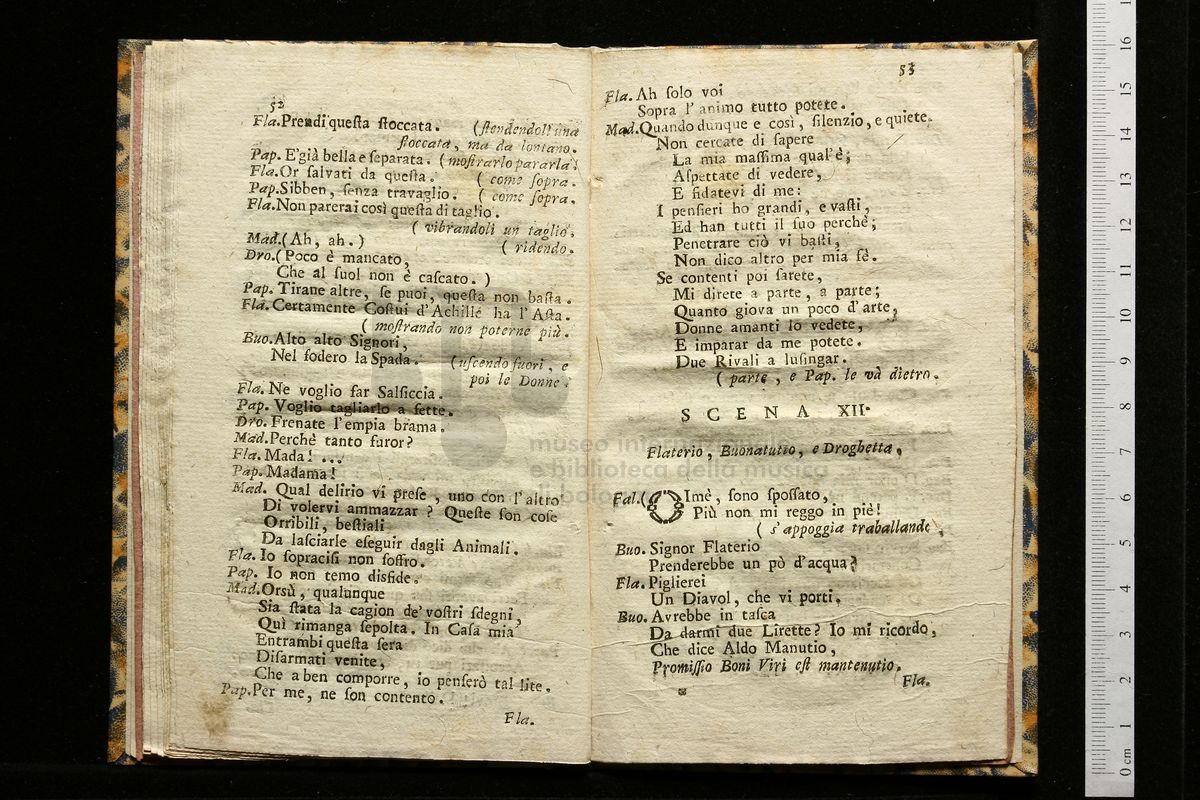 52
Fla. Prendi questa stoccata. (stendendoli una
stoccata, ma da lontano.
Pap. E' già bella e separata. (mostrarlo pararla!
Fla. Or salvati da questa. ( come sopra.
Pap. Sibben, senza travaglio. ( come sopra.
Fla. Non parerai così questa di taglio.
( vibrandoli un taglio.
Mad. (Ah, ah. ) ( ridendo.
Dro. (Poco è mancato,
Che al suol non è cascato. )
Pap. Tirane altre, se puoi, questa non basta.
Fla. Certamente Costui d'Achille ha l'Asta.
( mostrando non poterne più.
Buo. Alto alto Signori,
Nel fodero la Spada. (uscendo fuori, e
poi le Donne.
Fla. Ne voglio far Salsiccia.
Pap. Voglio tagliarlo a fette.
Dro. Frenate l'empia brama.
Mad. Perchè tanto furor?
Fla. Mada! ...
Pap. Madama!
Mad. Qual delirio vi prese, uno con l'altro
Di volervi ammazzar? Queste son cose
Orribili, bestiali
Da lasciarle eseguir dagli Animali.
Fla. Io sopracisi non soffro.
Pap. Io non temo disfide.
Mad. Orsù, qualunque
Sia stata la cagion de' vostri sdegni,
Quì rimanga sepolta. In Casa mia
Entrambi questa sera
Disarmati venite,
Che a ben comporre, io penserò tal lite.
Pap. Per me, ne son contento.
Fla.
53
Fla. Ah solo voi
Sopra l'animo tutto potete.
Mad. Quando dunque e così, silenzio, e quiete.
Non cercate di sapere
La mia massima qual'è;
Aspettate di vedere,
E fidatevi di me:
I pensieri ho grandi, e vasti,
Ed han tutti il suo perchè;
Penetrare ciò vi basti,
Non dico altro per mia fè.
Se contenti poi sarete,
Mi direte a parte, a parte;
Quanto giova un poco d'arte,
Donne amanti lo vedete,
E imparar da me potete.
Due Rivali a lusingar.
( parte, e Pap. le và dietro.
SCENA XII.
Flaterio, Buonatutio, e Droghetta,
Fal. (OImè, sono spossato,
Più non mi reggo in piè!
( s'appoggia traballando,
Buo. Signor Flaterio
Prenderebbe un pò d'acqua?
Fla. Piglierei
Un Diavol, che vi porti.
Buo. Avrebbe in tasca
Da darmi due Lirette? Io mi ricordo,
Che dice Aldo Manutio,
Promissio Boni Viri est mantenutio.
Fla.
museo internazionale
e biblioteca della musica
di bologna
0 cm 1 2 3 4 5 6 7 8 9 10 11 12 13 14 15 16